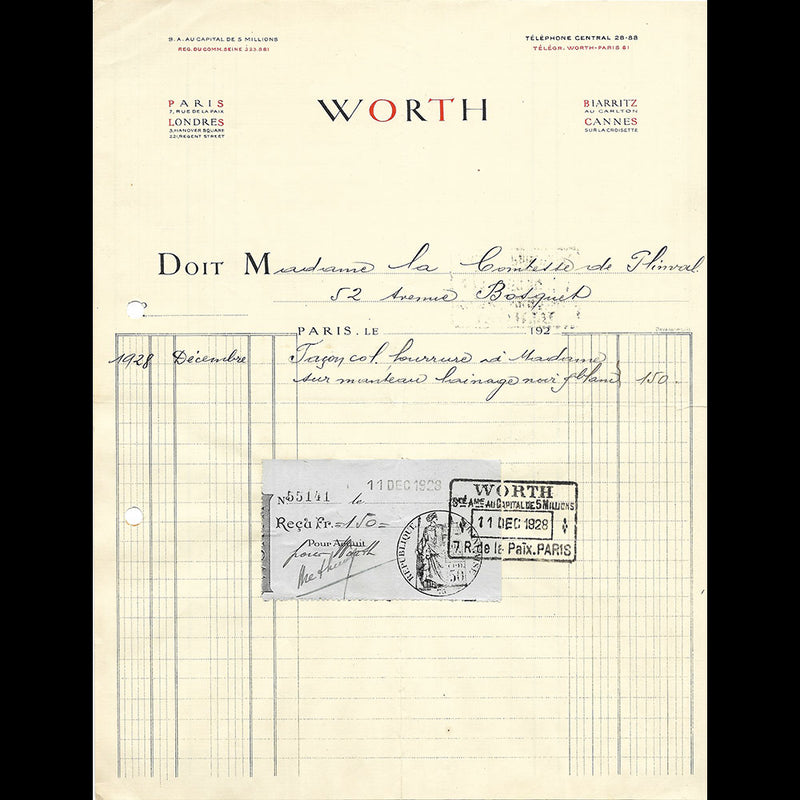 S. A. AU CAPITAL DE 5 MILLIONS
REG. DU COMM. SEINE 233.581
TÉLÉPHONE CENTRAL 28-88
TÉLÉGR. WORTH-PARIS 61
PARIS
7, RUE DE LA PAIX
LONDRES
3, HANOVER SQUARE
221, REGENT STREET
WORTH
BIARRITZ
AU CARLTON
CANNES
SUR LA CROISETTE
DOIT Madame la Comtesse de Plinval
52 Avenue Bosquet
PARIS, LE 192
1928 Décembre Façon col fourrure à Madame
sur manteau lainage noir blanc 150
11 DEC 1928
No 55141 le
Reçu Fr. =150=
Pour Acquit
pour Worth
RÉPUBLIQUE
50
WORTH
Sté Ame AU CAPITAL DE 5 MILLIONS
11 DEC 1928
7, R. de la Paix. PARIS